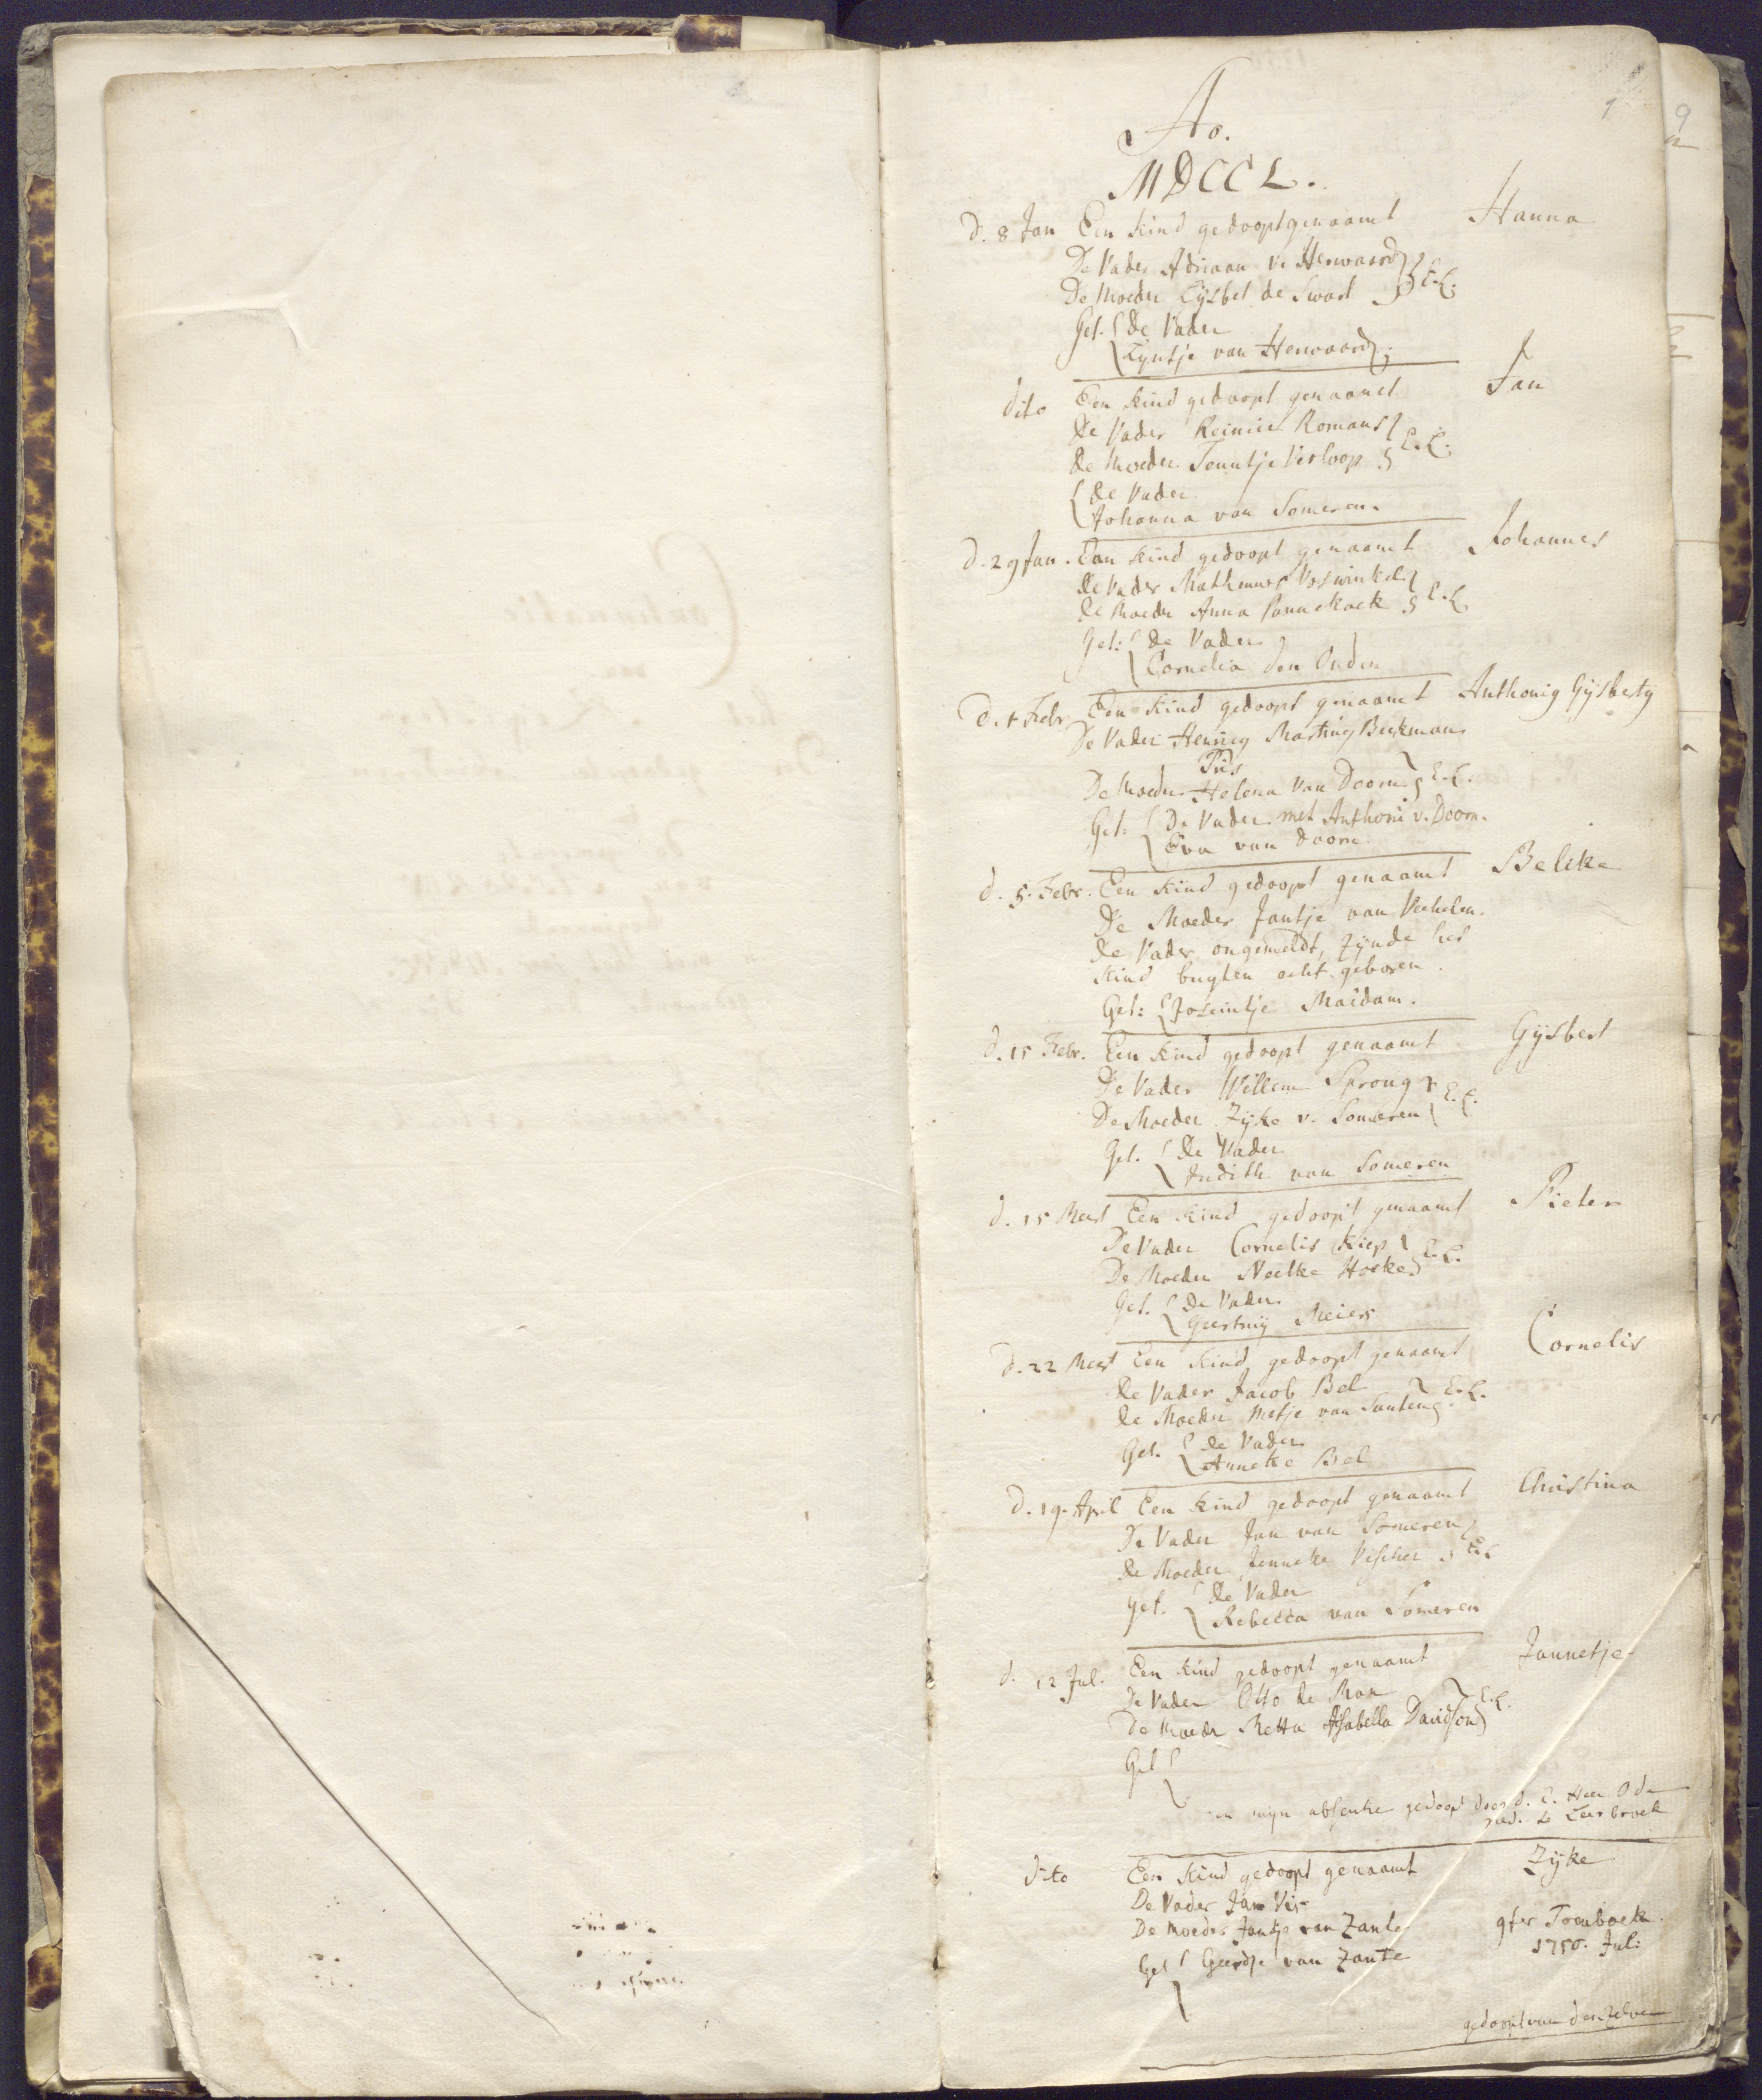 1
Ao.
MDCCL.
d. 8 Jan Een kind gedoopt genaamt Hanna
De Vader Adriaan v. Herwaard
De Moeder Lijsbet de Swart E.L.
Get. De Vader
Lijntje van Herwaard
dito Een kind gedoopt genaamt Jan
De Vader Reinier Romans
De Moeder Teuntje Verloop E.L.
De Vader
Johanna van Someren.
d. 29 Jan. Een kind gedoopt genaamt Johannes
De Vader Voswinkel
De Moeder Anna Pannekoek E.L.
Get: De Vader
Cornelia den Ouden
d. 1 Febr. Een kind gedoopt genaamt Anthonig Gijsbertg
De Vader Henrieg Martineg Beekman
Pus
De Moeder Helena Van Doorn E.L.
Get: De Vader met Anthoni v. Doorn.
Eva van Doorn
d. 5. Febr. Een kind gedoopt genaamt Belike
De Moeder Jantje van Veehelen.
De Vader ongemeldt, zijnde het
kind buyten echt geboren.
Get: Joseintje Maidam.
d. 15 Febr. Een kind gedoopt genaamt Gijsbert
De Vader Willem Sprong
De Moeder Zijke v. Someren E.L.
Get. De Vader
Judith van Someren
d. 15 Meert Een kind gedoopt genaamt Pieter
De Vader Cornelis Kiep
De Moeder Neelke Hoeke E.L.
Get. De Vader
Geertruij Meiers
d. 22 Meert Een kind gedoopt genaamt Cornelis
De Vader Jacob Bel
De Moeder Metje van Santen E.L.
Get. De Vader
Anneke Bel
d. 19. April Een kind gedoopt genaamt Christina
De Vader Jan van Someren
De Moeder Jenneke Vischer E.L.
Get. De Vader
Rebecca van Someren
d. 12 Jul. Een kind gedoopt genaamt Jannetje
De Vader Otto de Man
De Moeder Metta Isabella Davidson E.L.
Get
in mijn absentie gedoopt door d. E. Heer Ode
pred. te Leerbroek
dito Een kind gedoopt genaamt Zijke
De Vader Jan Vis
De Moeder Jantje van Zante
Get Geertje van Zante
1750. Jul:
gedoopt van denzelven